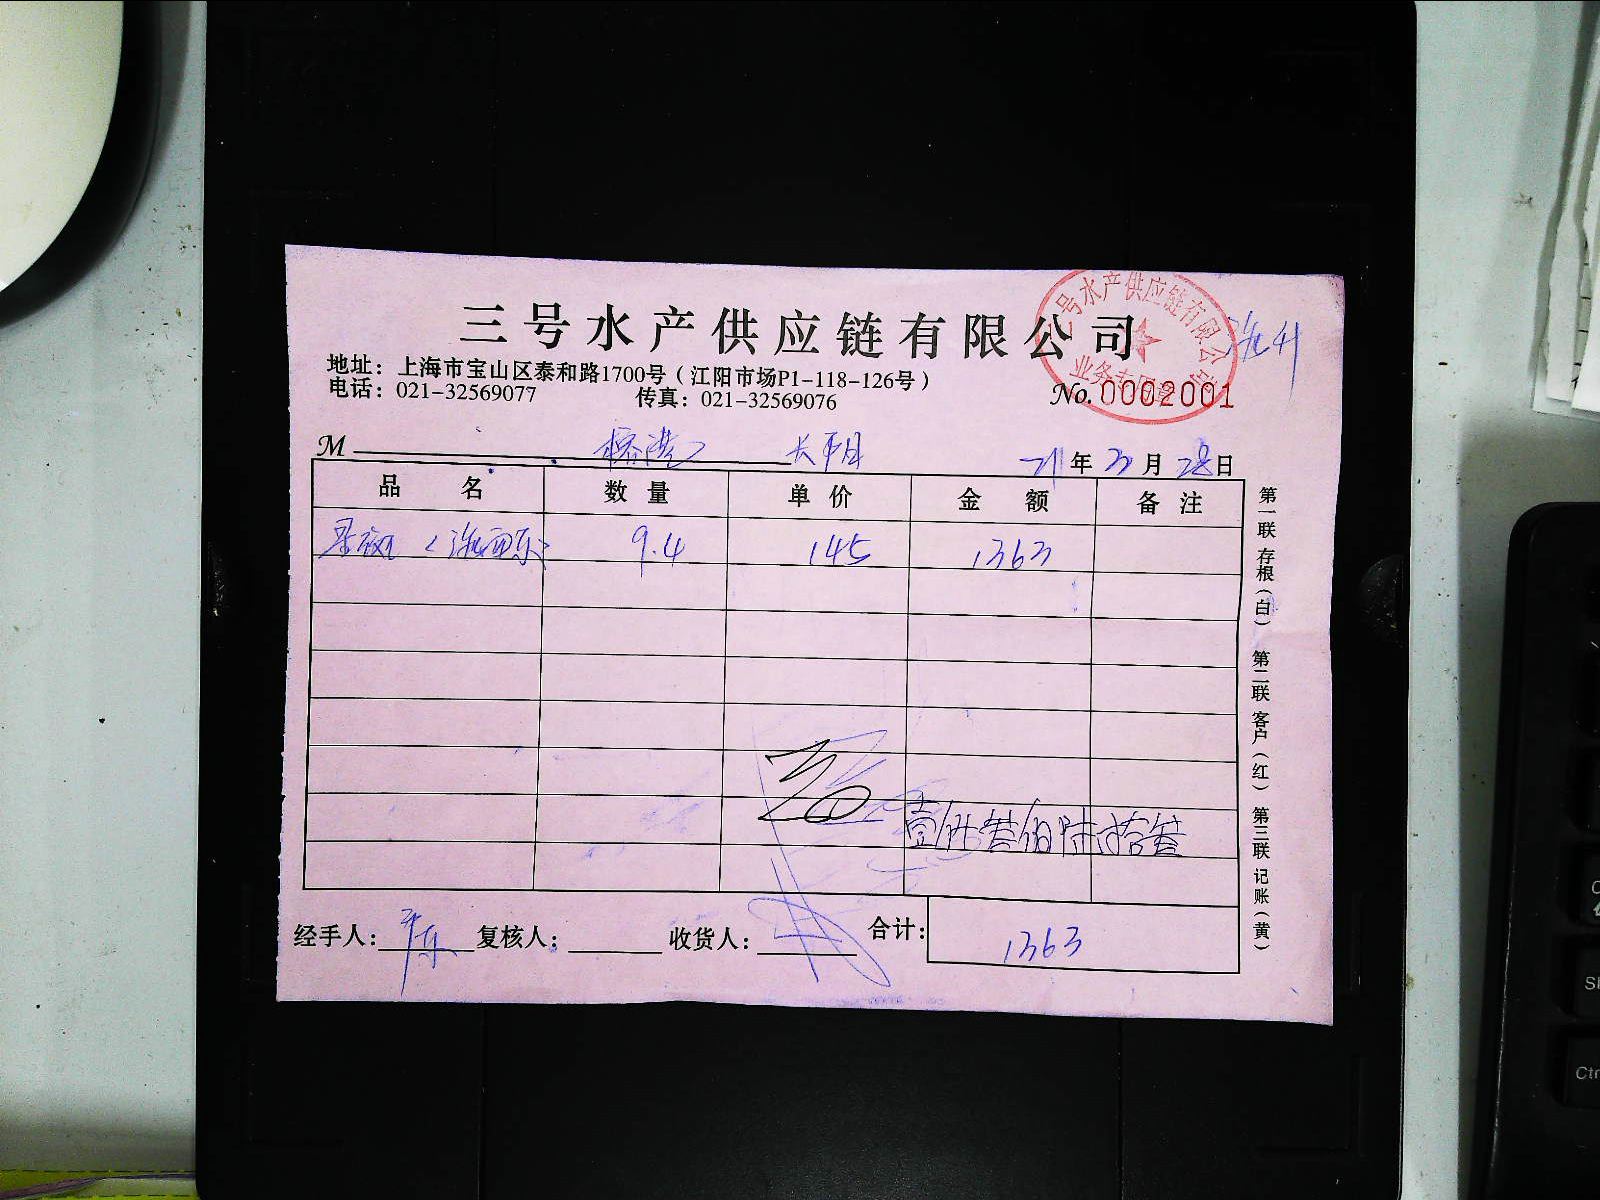 三号水产供应链有限公司
三号水产供应链有限公司
业务专用章
地址：上海市宝山区泰和路1700号（江阳市场P1-118-126号）
电话：021-32569077 传真：021-32569076
No.0002001
M 榕港 年 月 28日
品名 数量 单价 金额 备注
9.4 145 1363
壹仟叁佰陆拾叁
经手人： 复核人： 收货人： 合计： 1363
第一联 存根（白） 第二联 客户（红） 第三联 记账（黄）